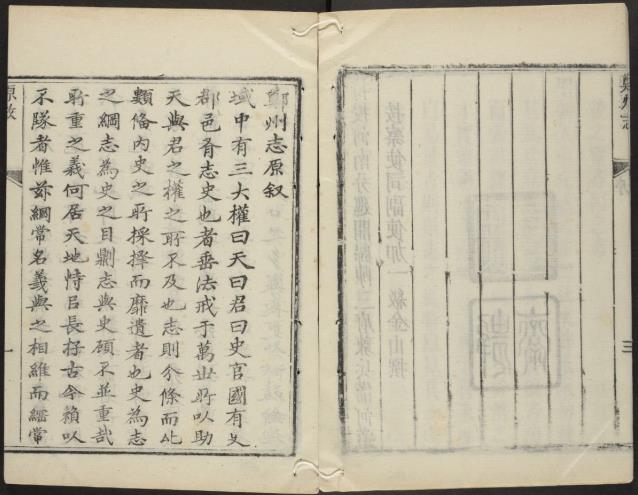 鄭州志
三
鄭州志原叙
域中有三大權曰天曰君曰史官國有史
郡邑胥志史也者垂法戒于萬世所以助
天與君之權之所不及也志則分條而比
類俻內史之所採擇而靡遺者也史為志
之綱志為史之目志與史顧不並重哉
所重之義何居天地恃㠯長存古今賴以
不隊者惟茲綱常名義與之相維而經常
原敘
一